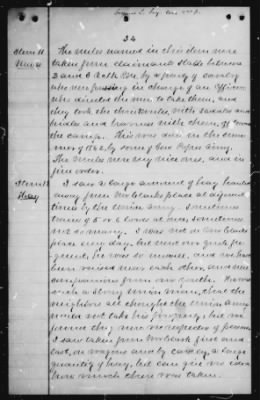 34
Item 11
Mules
The mules named in this item were
taken from claimant's stable between
2 and 3 o'clock P.M., by a party of cavalry
who were in charge of an officer
who directed the men to take them, and
they took the mules with saddles and
bridles and harness with them, off toward
the camp. This was also in the sum-
mer of 1862, by some of Gen Popes Army.
The mules were very nice ones, and in
fine order.
Hay
I saw a large amount of hay hauled
away from Mr place at different
times by the Union Army. Sometimes
teams of 5 or 6 loads at once, sometimes
not so many. I was not on Mr
place every day, but went over quite fre-
quent, he was so uneasy, and we have
been raised near each other, and were
companions from our youth. He was
such a strong Union man, that the
neighbors all thought the Union army
would not take his property, but we
found they were no respecters of persons.
I saw taken from Mr first and
last, in wagons and by cavalry, a large
quantity of hay, but can give no idea
how much there was taken.